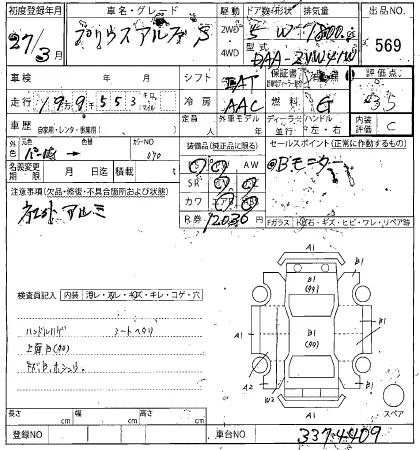 初度登録年月 車名・グレード 駆動 ドア数/形状 排気量 出品NO.
27/3月 プリウスアルファ S 2WD 4WD 5 W 1800 569
型式 DAA-ZVW41W
車検 年 月 シフト DAT 保証書 評価点 3.5
走行 19万9千553 冷房 AAC 燃料 G 内装評価 C
車歴 自家用・レンタ・事業用( ) 定員 人 外車モデル 年 ディーラー 並行 ハンドル 左・右
外色 元色 パール 色替 カラーNO 070 装備品(純正品に限る) セールスポイント(正常に作動するもの)
名義変更期限 月 日迄 積載 t PS PW AW @Bモニター
SR
注意事項(欠品・修復・不具合箇所および状態) カワ エアB
社外アルミ R.券 12030 Fガラス 飛石・キズ・ヒビ・ワレ・リペア跡
A1
B1
B1 (99)
検査員記入 内装 汚レ・スレ・キズ・キレ・コゲ・穴
ハンドルハゲ シートヘタリ
A1 B1 (90) A1 B1
上廻B(90)
A2 B1
W2
A1 スペア
長さ cm 幅 cm 高さ cm
登録NO 車台NO 3374409